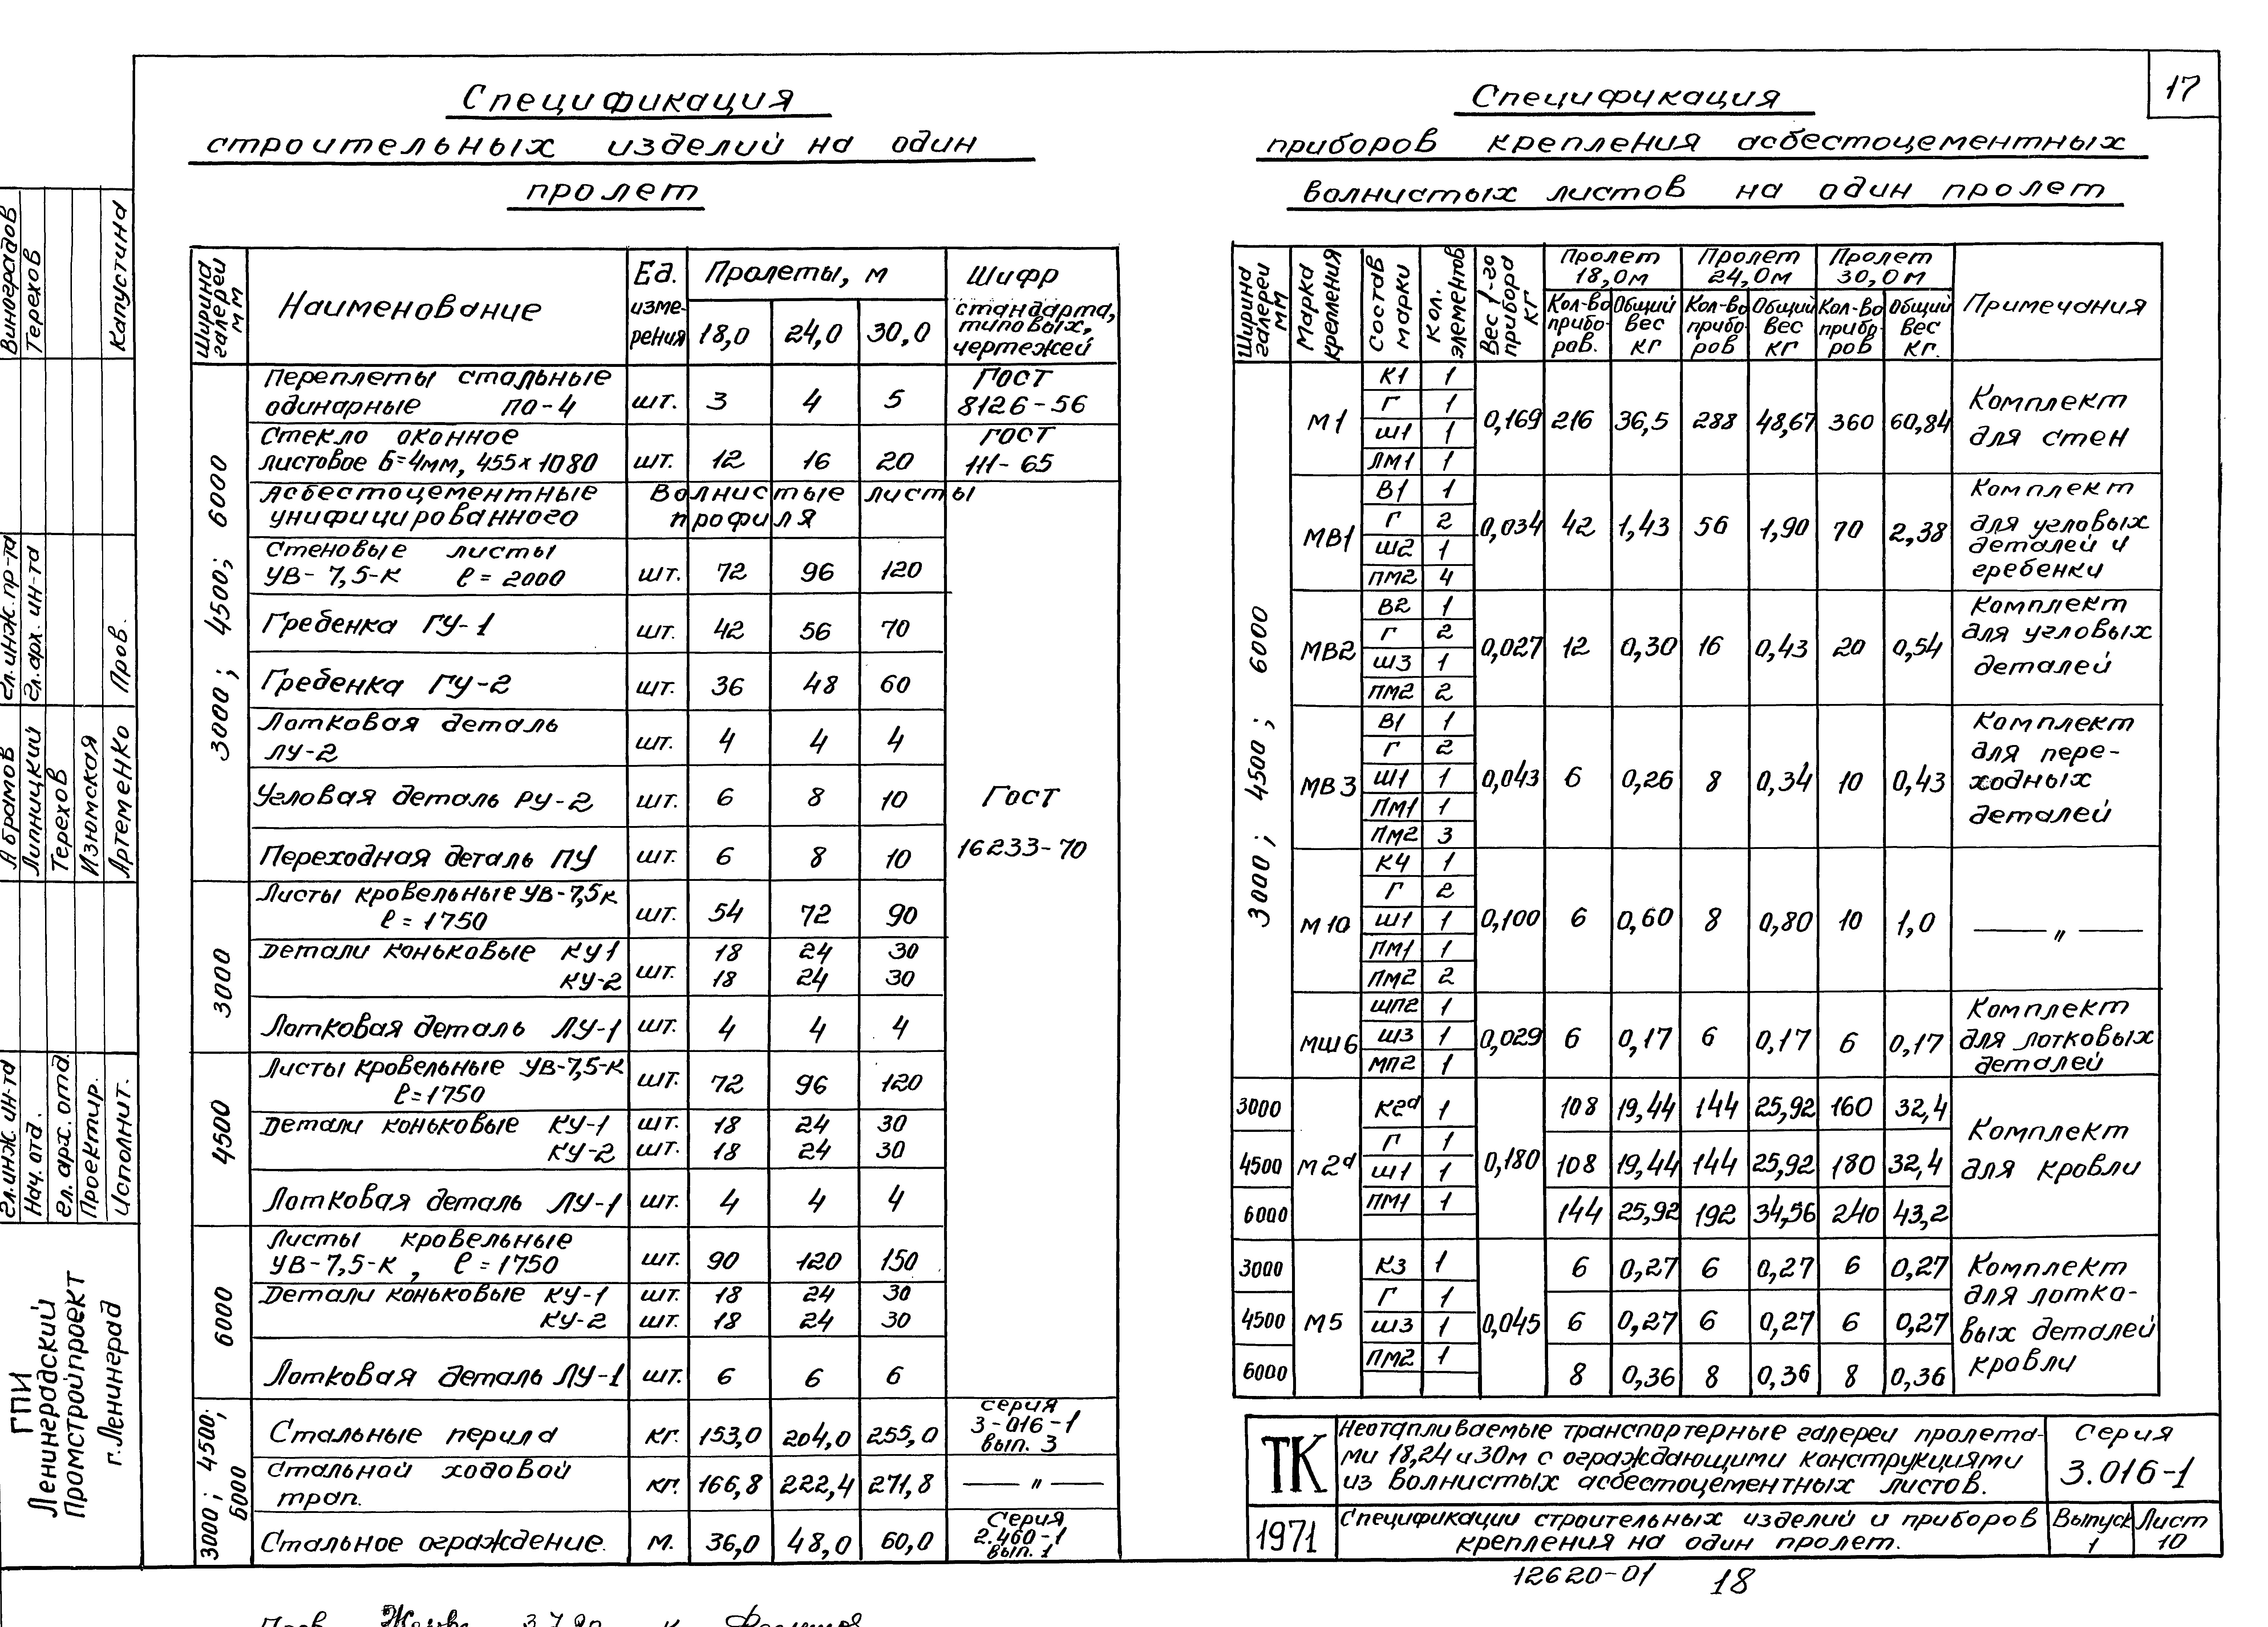 17
Спецификация
строительных изделий на один
пролет
Ширина галереи мм | Наименование | Ед. измерения | Пролеты, м 18,0 | 24,0 | 30,0 | Шифр стандарта, типовых, чертежей
3000; 4500; 6000
Переплеты стальные одинарные ПО-4 | шт. | 3 | 4 | 5 | ГОСТ 8126-56
Стекло оконное листовое Б=4мм, 455х1080 | шт. | 12 | 16 | 20 | ГОСТ 111-65
Асбестоцементные волнистые листы
унифицированного профиля
Стеновые листы УВ-7,5-К ℓ=2000 | шт. | 72 | 96 | 120
Гребенка ГУ-1 | шт. | 42 | 56 | 70
Гребенка ГУ-2 | шт. | 36 | 48 | 60
Лотковая деталь ЛУ-2 | шт. | 4 | 4 | 4
Угловая деталь РУ-2 | шт. | 6 | 8 | 10 | Гост
Переходная деталь ПУ | шт. | 6 | 8 | 10 | 16233-70
3000
Листы кровельные УВ-7,5К ℓ=1750 | шт. | 54 | 72 | 90
Детали коньковые КУ1 | шт. | 18 | 24 | 30
КУ-2 | 18 | 24 | 30
Лотковая деталь ЛУ-1 | шт. | 4 | 4 | 4
4500
Листы кровельные УВ-7,5-К ℓ=1750 | шт. | 72 | 96 | 120
Детали коньковые КУ-1 | шт. | 18 | 24 | 30
КУ-2 | шт. | 18 | 24 | 30
Лотковая деталь ЛУ-1 | шт. | 4 | 4 | 4
6000
Листы кровельные УВ-7,5-К, ℓ=1750 | шт. | 90 | 120 | 150
Детали коньковые КУ-1 | шт. | 18 | 24 | 30
КУ-2 | шт. | 18 | 24 | 30
Лотковая деталь ЛУ-1 | шт. | 6 | 6 | 6
3000; 4500; 6000
Стальные перила | кг. | 153,0 | 204,0 | 255,0 | серия 3-016-1 вып. 3
Стальной ходовой трап. | кг. | 166,8 | 222,4 | 271,8 | — " —
Стальное ограждение. | м. | 36,0 | 48,0 | 60,0 | Серия 2.460-1 вып. 1
Спецификация
приборов крепления асбестоцементных
волнистых листов на один пролет
Ширина галереи мм | Марка крепления | Состав марки | Кол. элементов | Вес 1-го прибора кг | Пролет 18,0м | Пролет 24,0м | Пролет 30,0м | Примечания
Кол-во приборов. | Общий вес кг | Кол-во приборов | Общий вес кг | Кол-во приборов | Общий вес кг.
3000; 4500; 6000
М1 | 0,169 | 216 | 36,5 | 288 | 48,67 | 360 | 60,84 | Комплект для стен
К1 | 1
Г | 1
Ш1 | 1
ЛМ1 | 1
МВ1 | 0,034 | 42 | 1,43 | 56 | 1,90 | 70 | 2,38 | Комплект для угловых деталей и гребенки
В1 | 1
Г | 2
Ш2 | 1
ПМ2 | 4
МВ2 | 0,027 | 12 | 0,30 | 16 | 0,43 | 20 | 0,54 | Комплект для угловых деталей
В2 | 1
Г | 2
Ш3 | 1
ПМ2 | 2
МВ3 | 0,043 | 6 | 0,26 | 8 | 0,34 | 10 | 0,43 | Комплект для переходных деталей
В1 | 1
Г | 2
Ш1 | 1
ПМ1 | 1
ПМ2 | 3
М10 | 0,100 | 6 | 0,60 | 8 | 0,80 | 10 | 1,0 | — " —
К4 | 1
Г | 2
Ш1 | 1
ПМ1 | 1
ПМ2 | 2
МШ6 | 0,029 | 6 | 0,17 | 6 | 0,17 | 6 | 0,17 | Комплект для лотковых деталей
ШП2 | 1
Ш3 | 1
МП2 | 1
М2а | 0,180 | Комплект для кровли
К2а | 1
Г | 1
Ш1 | 1
ПМ1 | 1
3000 | 108 | 19,44 | 144 | 25,92 | 160 | 32,4
4500 | 108 | 19,44 | 144 | 25,92 | 180 | 32,4
6000 | 144 | 25,92 | 192 | 34,56 | 240 | 43,2
М5 | 0,045 | Комплект для лотковых деталей кровли
К3 | 1
Г | 1
Ш3 | 1
ПМ2 | 1
3000 | 6 | 0,27 | 6 | 0,27 | 6 | 0,27
4500 | 6 | 0,27 | 6 | 0,27 | 6 | 0,27
6000 | 8 | 0,36 | 8 | 0,36 | 8 | 0,36
ТК
1971
Неотапливаемые транспортерные галереи пролета-
ми 18,24 и 30м с ограждающими конструкциями
из волнистых асбестоцементных листов.
Серия
3.016-1
Спецификации строительных изделий и приборов
крепления на один пролет.
Выпуск 1
Лист 10
12620-01 18
Виноградов
Терехов
Капустина
Гл. инж. пр-та
Гл. арх. ин-та
Пров.
Абрамов
Липницкий
Терехов
Изюмская
Артеменко
Гл. инж. ин-та
Нач. отд.
Гл. арх. отд.
Проектир.
Исполнит.
ГПИ
Ленинградский
Промстройпроект
г. Ленинград